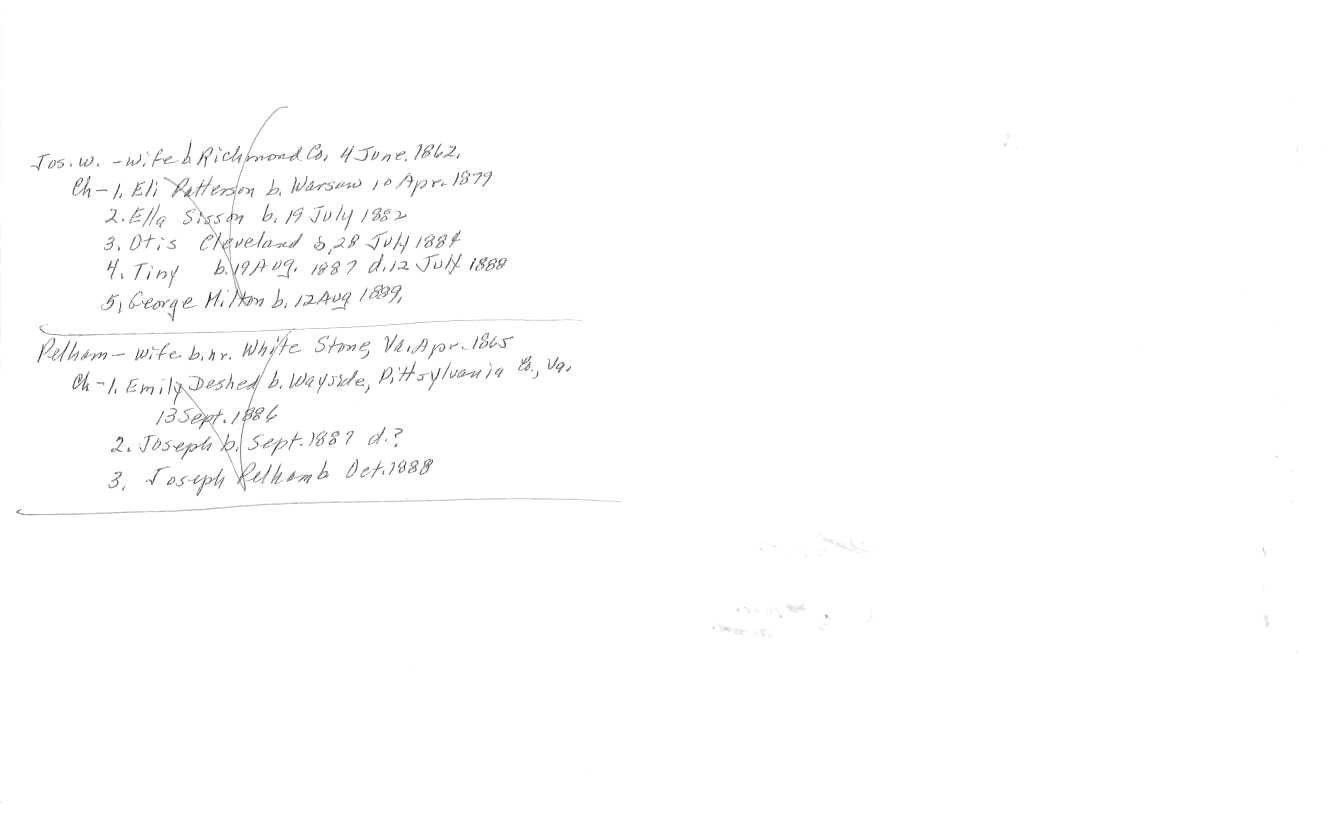 Jos. W. - wife b. Richmond Co, 4 June. 1862.
Ch - 1. Eli Patterson b. Warsaw 10 Apr. 1879
2. Ella Sisson b. 19 July 1882
3. Otis Cleveland b, 28 July 1884
4. Tiny b. 19 Aug. 1887 d. 12 July 1888
5, George Milton b. 12 Aug 1889,
Pelham - wife b. nr. White Stone, Va, Apr. 1865
Ch - 1. Emily Deshed b. Wayside, Pittsylvania Co., Va.
13 Sept. 1886
2. Joseph b. Sept. 1887 d. ?
3. Joseph Pelham b Oct. 1888